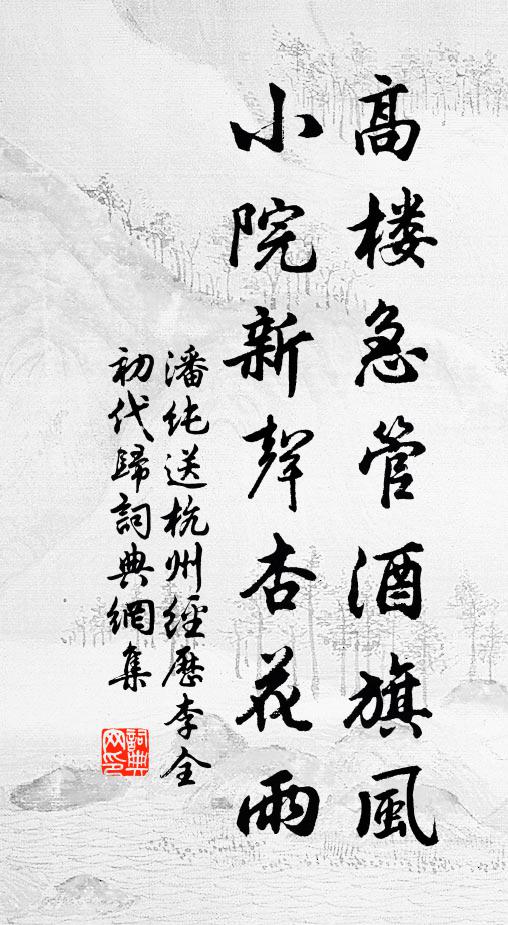 高楼急管酒旗風
小院新聲杏花雨
潘純送杭州經歷李全
初代歸詞典網集
詞典
网印